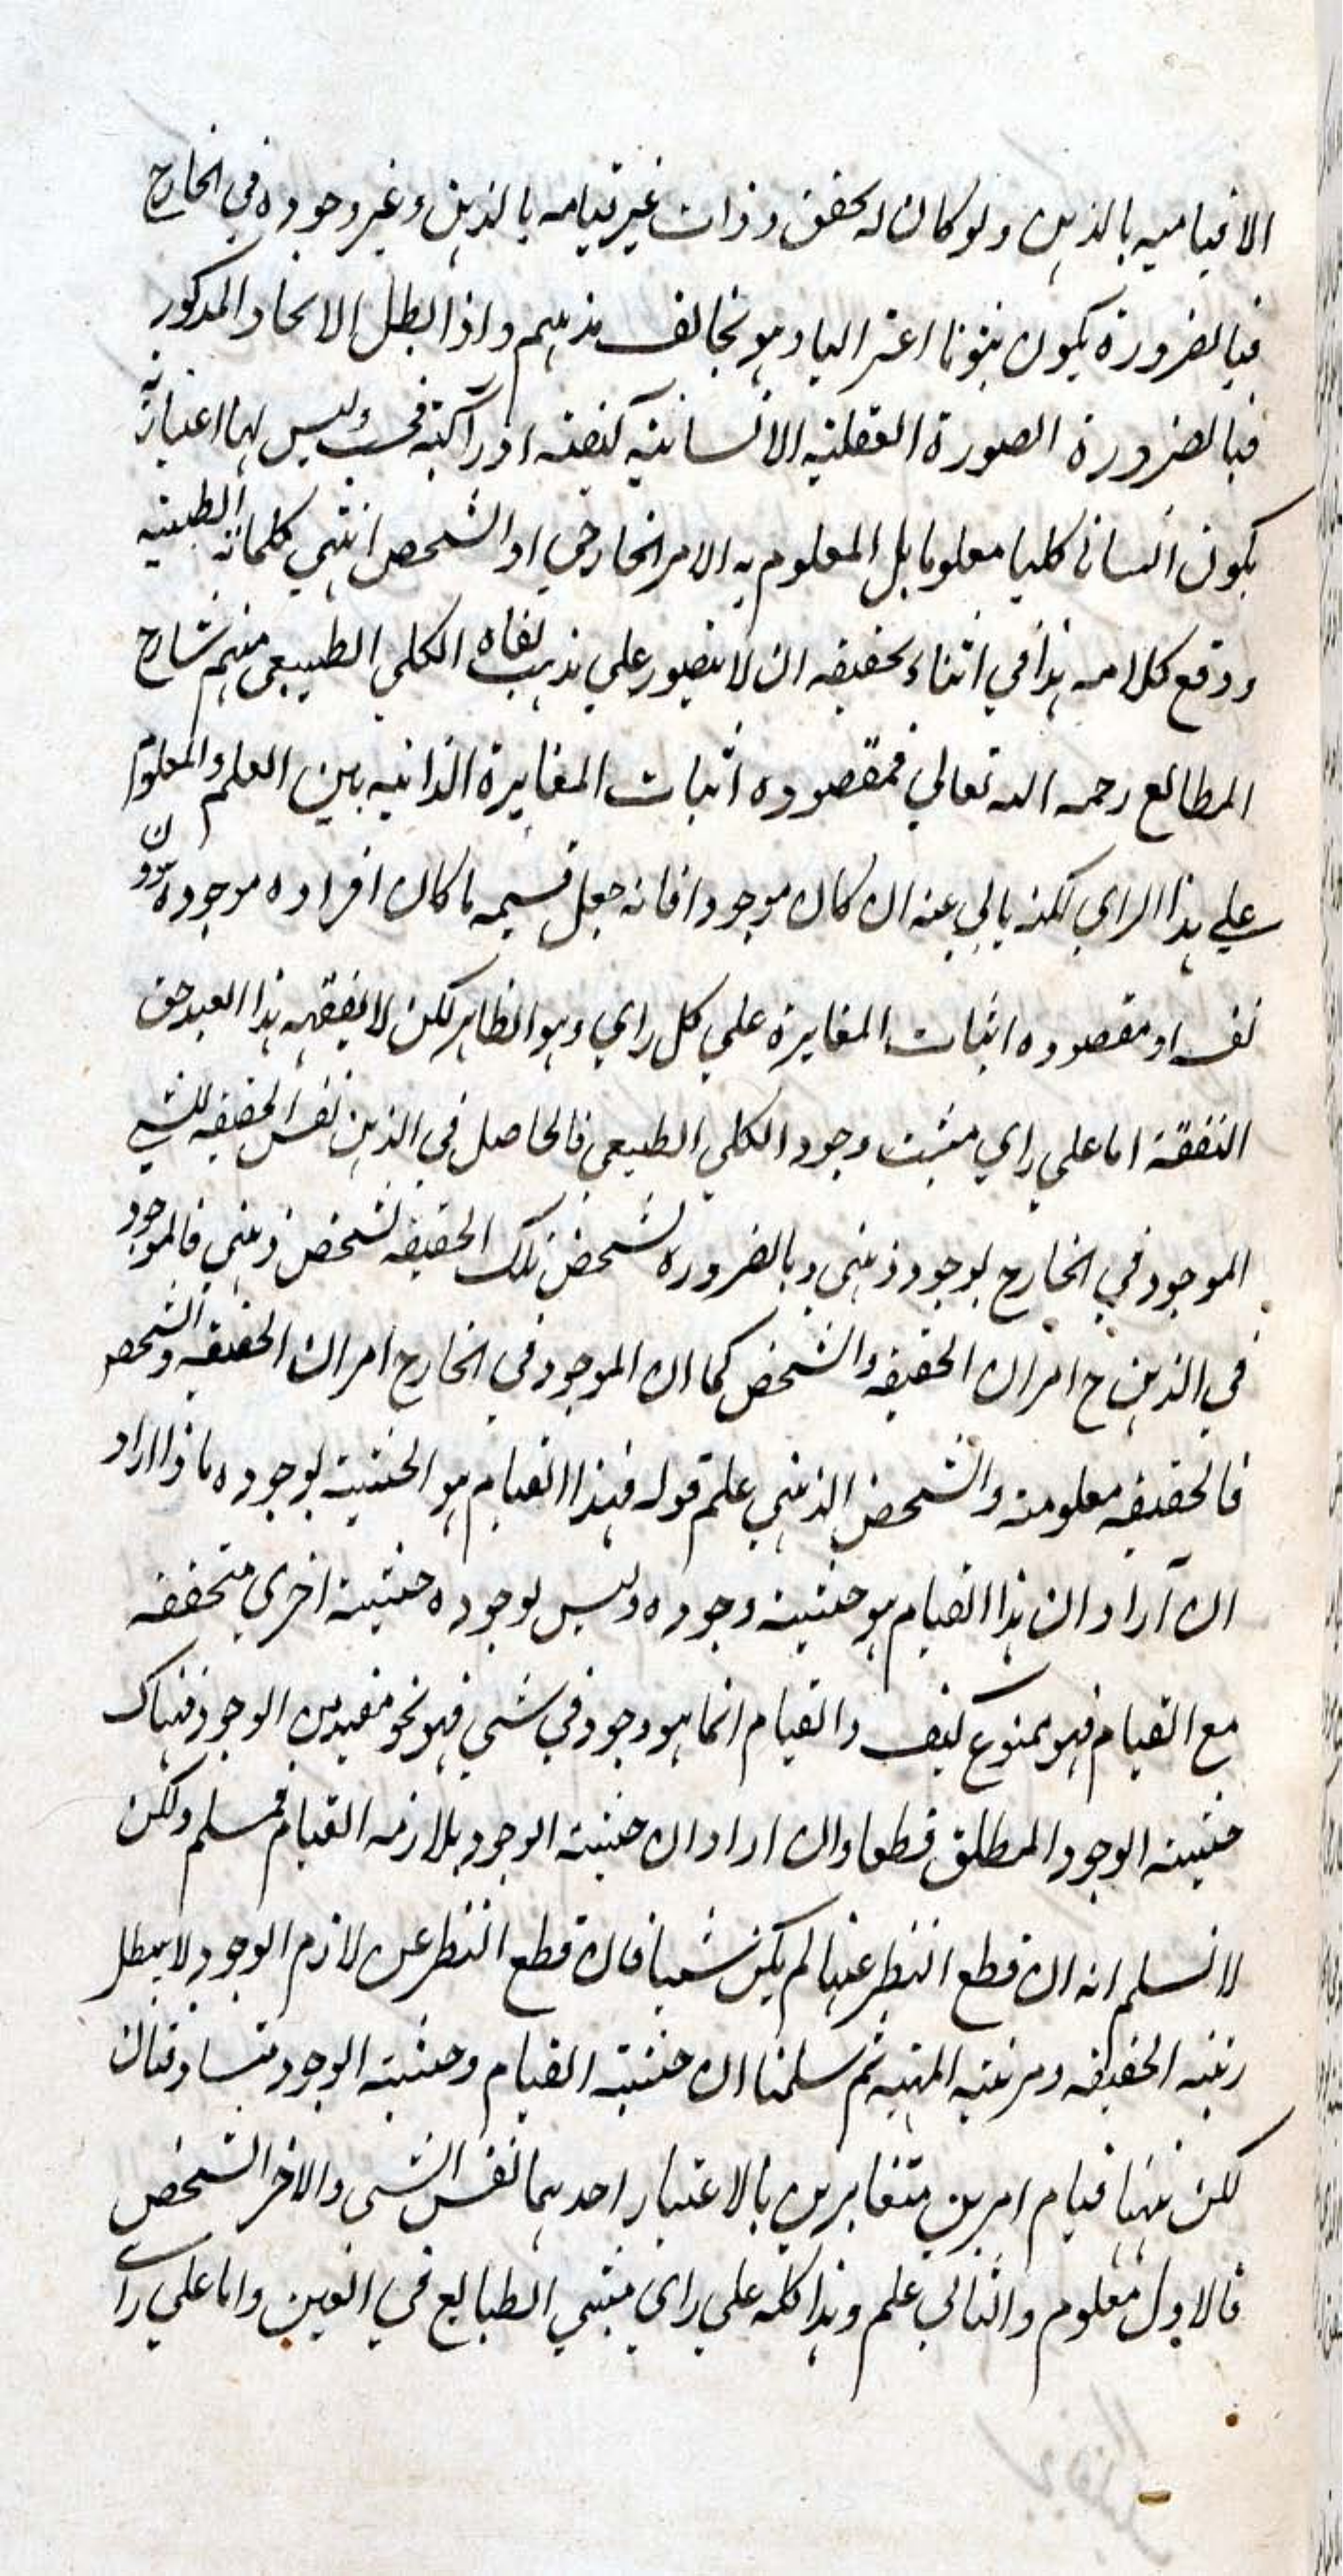 الا قيامه بالذهن ولو كان له تحقق وذات غير قيامه بالذهن وغير وجوده في الخارج
فبالضرورة يكون ثبوتا اعتزاليا وهو يخالف مذهبهم واذا بطل الاتحاد المذكور
فبالضرورة الصورة العقلية الانسانية كيفية ادراكية فحسب وليس لها اعتبار به
يكون انسانا كليا معلوما بل المعلوم به الامر الخارجي او الشخص انتهى كلماته الطيبة
ووقع كلامه هذا في اثناء تحقيقه ان لا يتصور علي مذهب نفاه الكلي الطبيعي منهم شارح
المطالع رحمه الله تعالي فمقصوده اثبات المغايرة الذاتيه بين العلم والمعلوم
علي هذا الراي لكنه يابي عنه ان كان موجودا فانه جعل قسيمه ما كان افراده موجودة دون
نفسه او مقصوده اثبات المغايرة علي كل راي وهو الظاهر لكن لا يفقهه هذا العبد حق
التفقه اما علي راي مثبت وجود الكلي الطبيعي فالحاصل في الذهن نفس الحقيقه للشي
الموجود في الخارج بوجود ذهني وبالضرورة تشخص تلك الحقيقه تشخص ذهني فالموجود
في الذهن ح امران الحقيقه والتشخص كما ان الموجود في الخارج امران الحقيقه والتشخص
فالحقيقه معلومة والتشخص الذهني علم قوله فهذا القيام هو الحيثية لوجوده ماذا اراد
ان اراد ان هذا القيام هو حيثية وجوده وليس لوجوده حيثية اخري متحققه
مع القيام فهو ممنوع كيف والقيام انما هو وجود في شي فهو نحو مقيد من الوجود فهناك
حيثية الوجود المطلق قطعا وان اراد ان حيثية الوجود يلازمه القيام فمسلم ولكن
لا نسلم انه ان قطع النظر عنها لم يكن شيا فان قطع النظر عن لازم الوجود لا يبطل
رتبه الحقيقه ومرتبة المهيه ثم سلمنا ان حيثية القيام وحيثية الوجود متساوقتان
لكن ههنا قيام امرين متغايرين بالاعتبار احدهما نفس الشي والاخر التشخص
فالاول معلوم والثاني علم وهذا كله علي راي مثبتي الطبايع في العين واما علي راي